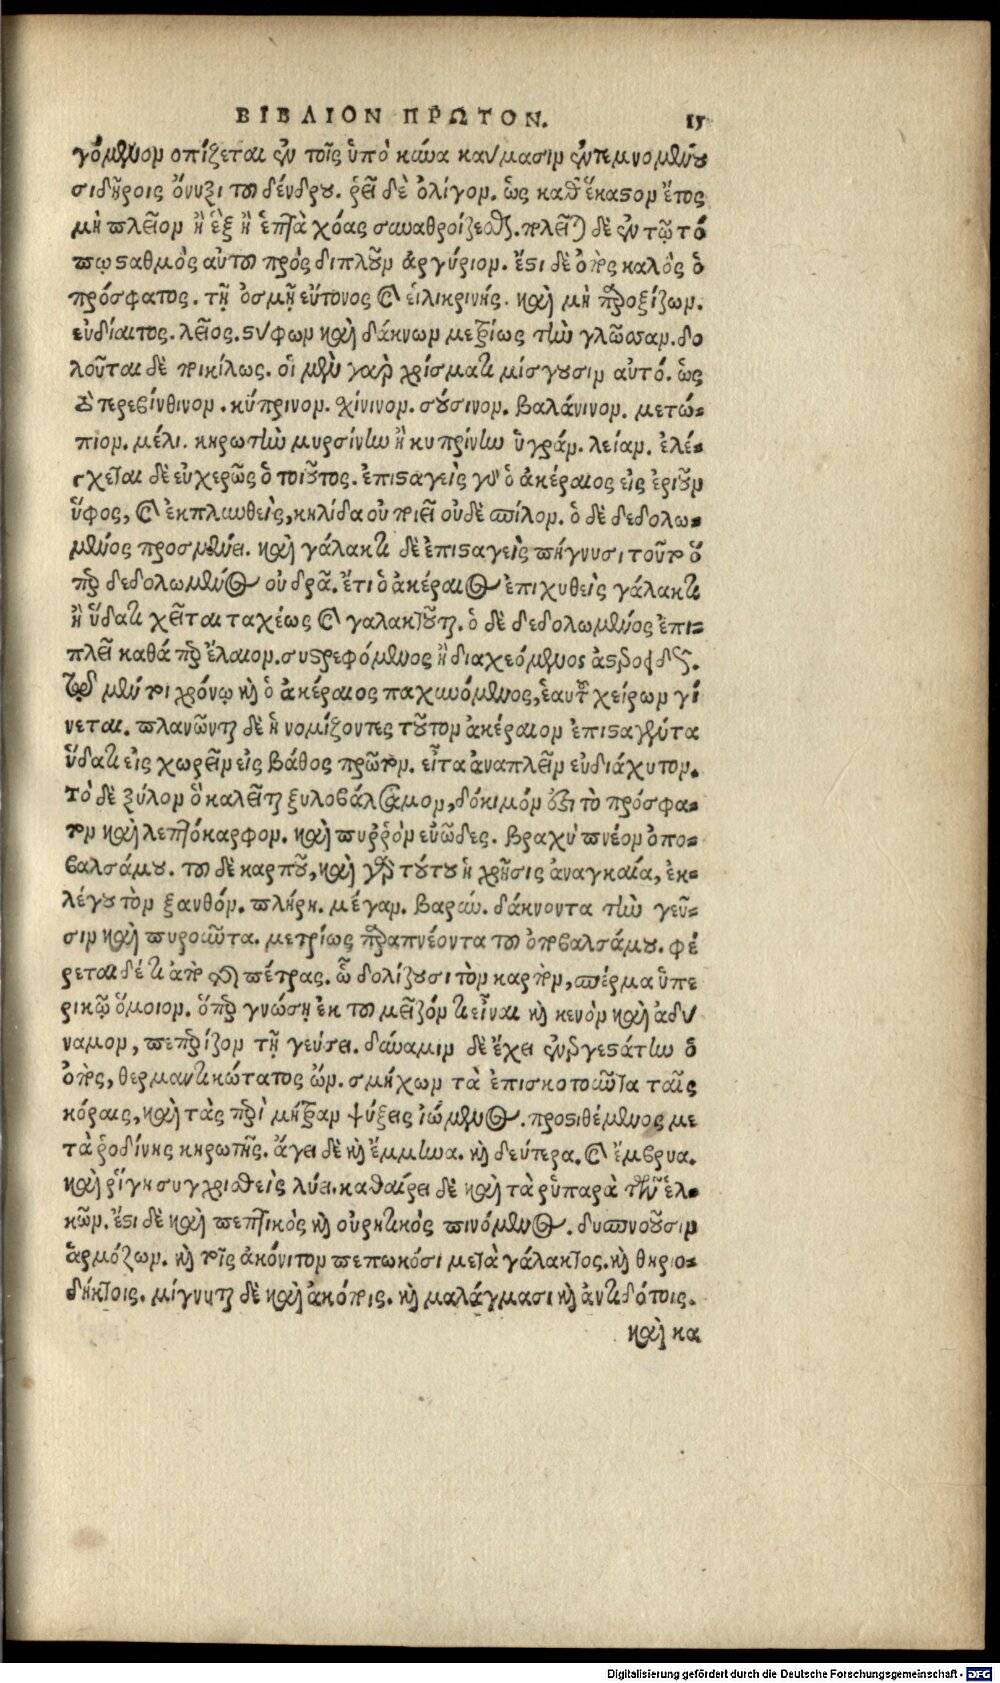 ΒΙΒΛΙΟΝ ΠΡΩΤΟΝ. 15
γόμενον ὀπίζεται ἐν τοῖς ὑπὸ κύνα καύμασιν ἐντεμνομένου
σιδηροῖς ὄνυξι τοῦ δένδρου. ῥεῖ δὲ ὀλίγον. ὡς καθ' ἕκαστον ἔτος
μὴ πλεῖον ἢ ἓξ ἢ ἑπτὰ χόας συναθροίζεσθαι. πλεῖται δὲ ἐν τῷ τό
πῳ σταθμὸς αὐτοῦ πρὸς διπλοῦν ἀργύριον. ἔστι δὲ ὀπὸς καλὸς ὁ
πρόσφατος. τῇ ὀσμῇ εὔτονος καὶ εἰλικρινής. καὶ μὴ παροξίζων.
εὐδίαιτος. λεῖος. στύφων καὶ δάκνων μετρίως τὴν γλῶσσαν. δο
λοῦται δὲ ποικίλως. οἱ μὲν γὰρ χρίσματι μίσγουσιν αὐτό. ὡς
τερεβίνθινον. κύπρινον. χίνινον. σούσινον. βαλάνινον. μετώ-
πιον. μέλι. κηρωτὴν μυρσίνην ἢ κυπρίνην ὑγράν. λείαν. ἐλέ-
γχεται δὲ εὐχερῶς ὁ τοιοῦτος. ἐπισταγεὶς γὰρ ὁ ἀκέραιος εἰς ἐριοῦν
ὕφος, καὶ ἐκπλυνθεὶς, κηλίδα οὐ ποιεῖ οὐδὲ σπίλον. ὁ δὲ δεδολω-
μένος προσμένει. καὶ γάλακτι δὲ ἐπισταγεὶς πήγνυσι τοῦτο ὅ
περ δεδολωμένος οὐ δρᾷ. ἔτι ὁ ἀκέραιος ἐπιχυθεὶς γάλακτι
ἢ ὕδατι χεῖται ταχέως καὶ γαλακτοῦται. ὁ δὲ δεδολωμένος ἐπι-
πλεῖ καθάπερ ἔλαιον. συστρεφόμενος ἢ διαχεόμενος ἀστροειδῶς.
τῷ μέντοι χρόνῳ καὶ ὁ ἀκέραιος παχυνόμενος, ἑαυτοῦ χείρων γί
νεται. πλανῶνται δὲ ἡ νομίζοντες τοῦτον ἀκέραιον ἐπισταγέντα
ὕδατι εἰς χωρεῖν εἰς βάθος πρῶτον. εἶτα ἀναπλεῖν εὐδιάχυτον.
Τὸ δὲ ξύλον ὃ καλεῖται ξυλοβάλσαμον, δόκιμόν ἐστι τὸ πρόσφα-
τον καὶ λεπτόκαρφον. καὶ πυῤῥὸν εὐῶδες. βραχὺ πνέον ὀπο-
βαλσάμου. τοῦ δὲ καρποῦ, καὶ γὰρ τούτου ἡ χρῆσις ἀναγκαία, ἐκ-
λέγου τὸν ξανθόν. πλήρη. μέγαν. βαρύν. δάκνοντα τὴν γεῦ-
σιν καὶ πυροῦντα. μετρίως παραπνέοντα τοῦ ὀποβαλσάμου. φέ
ρεται δέ τι ἀπὸ τῆς πέτρας. ᾧ δολίζουσι τὸν καρπὸν, σπέρμα ὑπε
ρικῷ ὅμοιον. ὅπερ γνώσῃ ἐκ τοῦ μεῖζόν τι εἶναι καὶ κενὸν καὶ ἀδύ
ναμον, πεπερίζον τῇ γεύσει. δύναμιν δὲ ἔχει ἐνεργεστάτην ὁ
ὀπὸς, θερμαντικώτατος ὤν. σμήχων τὰ ἐπισκοτοῦντα ταῖς
κόραις, καὶ τὰς περὶ μήτραν ψύξεις ἰώμενος. προστιθέμενος με
τὰ ῥοδίνης κηρωτῆς. ἄγει δὲ καὶ ἔμμηνα. καὶ δεύτερα. καὶ ἔμβρυα.
καὶ ῥίγη συγχρισθεὶς λύει. καθαίρει δὲ καὶ τὰ ῥυπαρὰ τῶν ἑλ-
κῶν. ἔστι δὲ καὶ πεπτικὸς καὶ οὐρητικὸς πινόμενος. δυσπνοοῦσιν
ἁρμόζων. καὶ τοῖς ἀκόνιτον πεπωκόσι μετὰ γάλακτος. καὶ θηριο-
δήκτοις. μίγνυται δὲ καὶ ἀκόποις. καὶ μαλάγμασι καὶ ἀντιδότοις.
καὶ κα
Digitalisierung gefördert durch die Deutsche Forschungsgemeinschaft - DFG